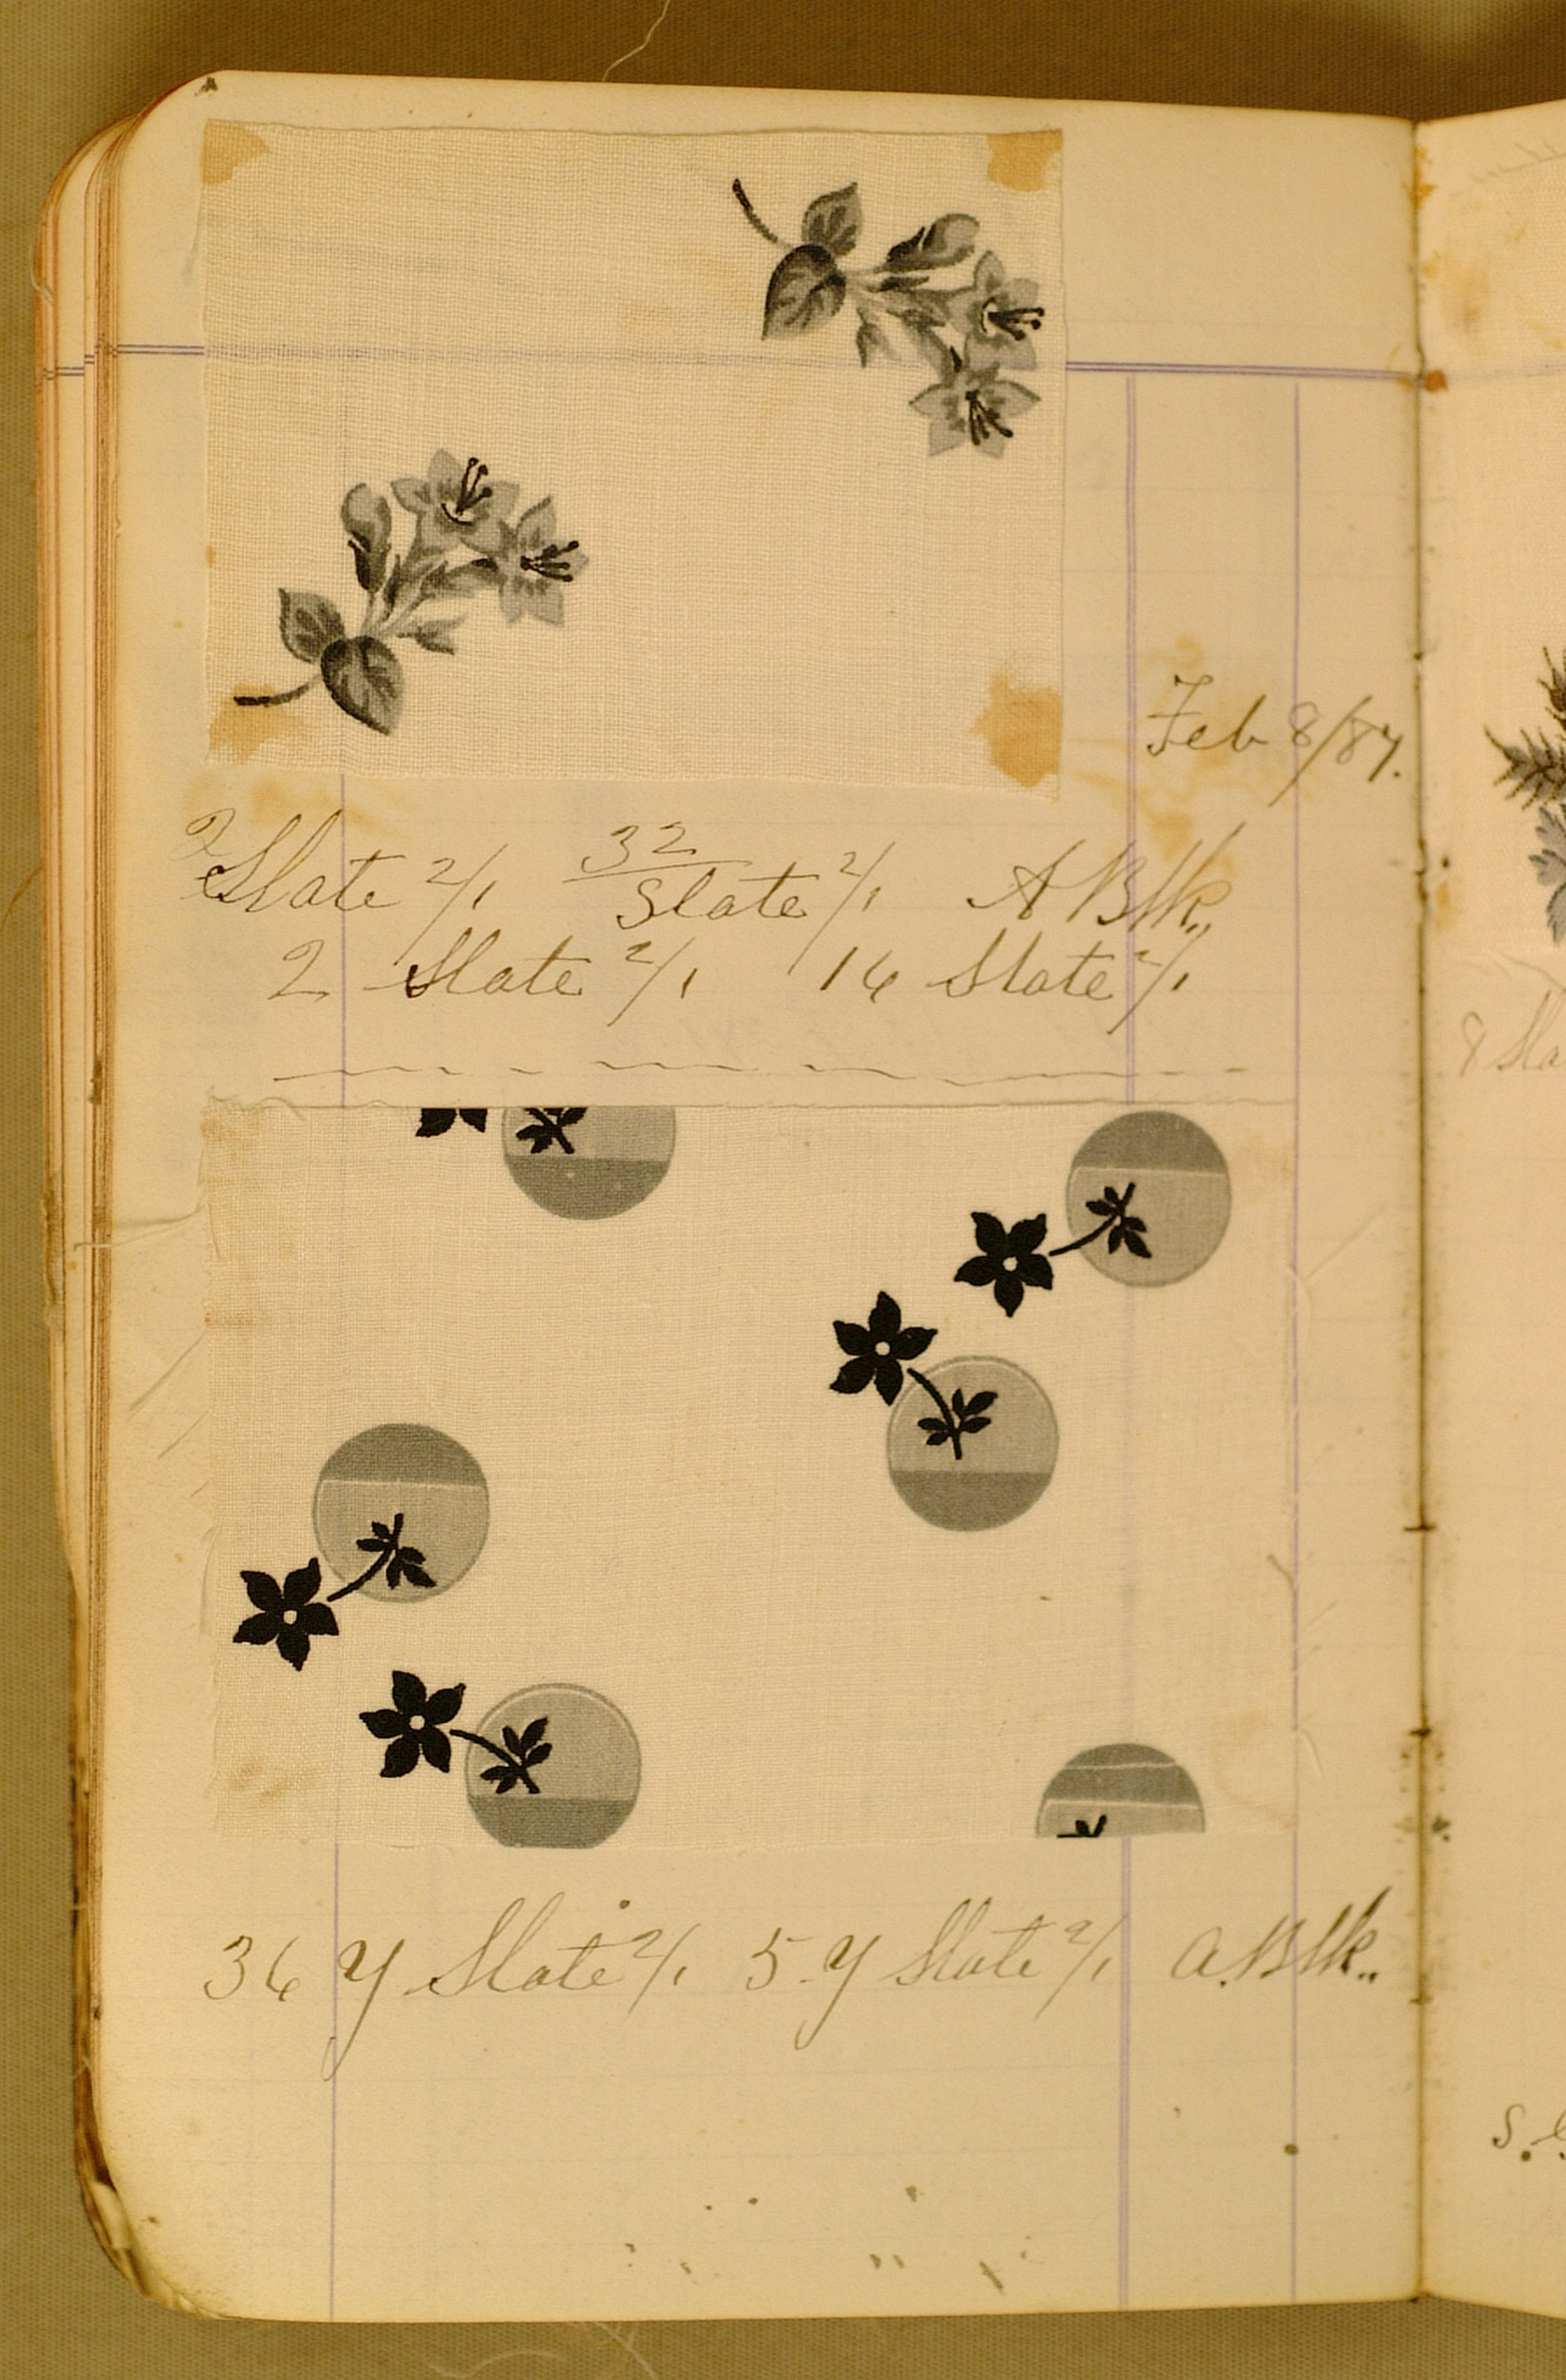 Feb 8/87.
2 Slate 2/1 32 Slate 2/1 A Blk.
2 Slate 2/1 16 Slate 2/1
36 Y Slate 2/1 5.Y Slate 2/1 A.Blk..
8 Sla
S.